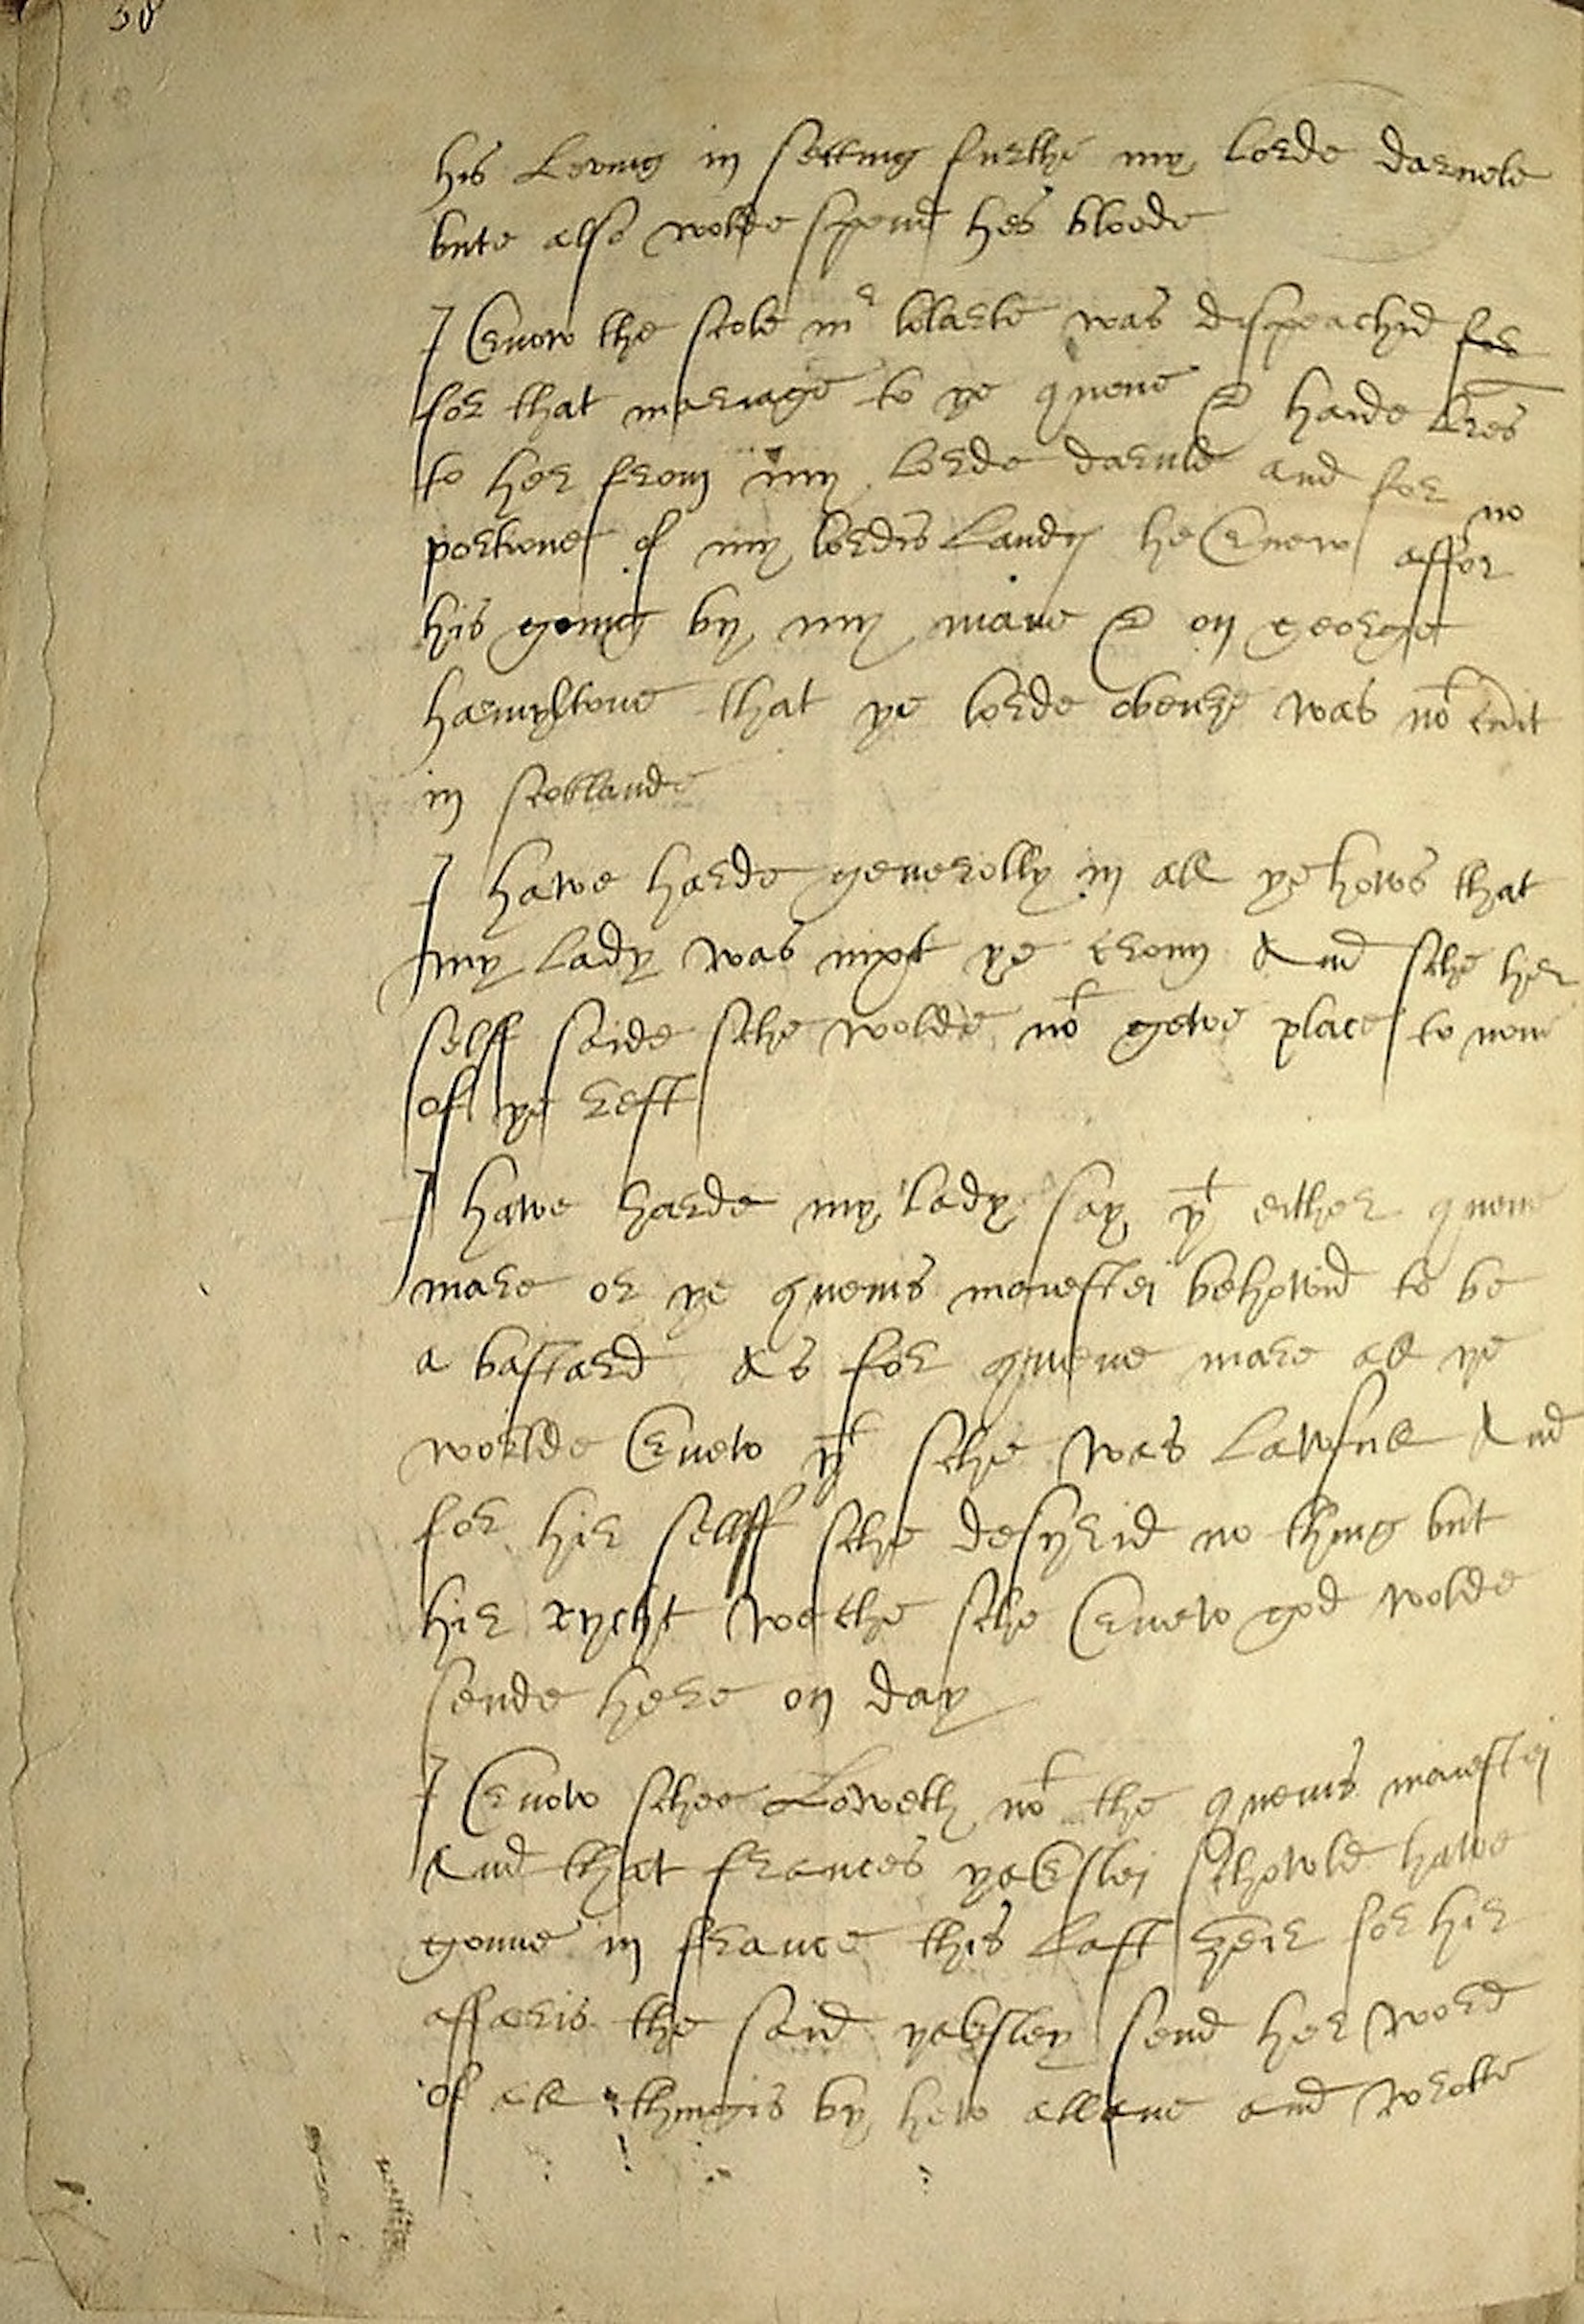 38
his Leving in setting furthe my lorde darnele
bute also wolde spend hes bloede
I know the scole mr was dispeachyd for
for that mariage to ye quene & hawde lres
to her from my lorde darnle and for no
portione of my lordis Landis he knew affor
his going by my mane & on george
hamyltone that ye lorde obenye was not
in scotlande
I hawe harde generolly in all ye hows that
my lady was nixt ye crown And sche her
selff saide sche wolde not gewe place to none
off ye rest
I hawe harde my lady say yt either quene
mare or ye quenis maiestei behowid to be
a bastard As for quene mare all ye
worlde knew yt sche was Lawfull And
for hir sellff sche desyrid no thing but
hir rycht wethe sche knew god wolde
sende here on day
I know schee Loweth not the quenis maiestei
And that frances yakslei schowld hawe
gonne in france this last yeir for hir
affaris the said yaksley send her word
of all thingis by hew allane and wrotte